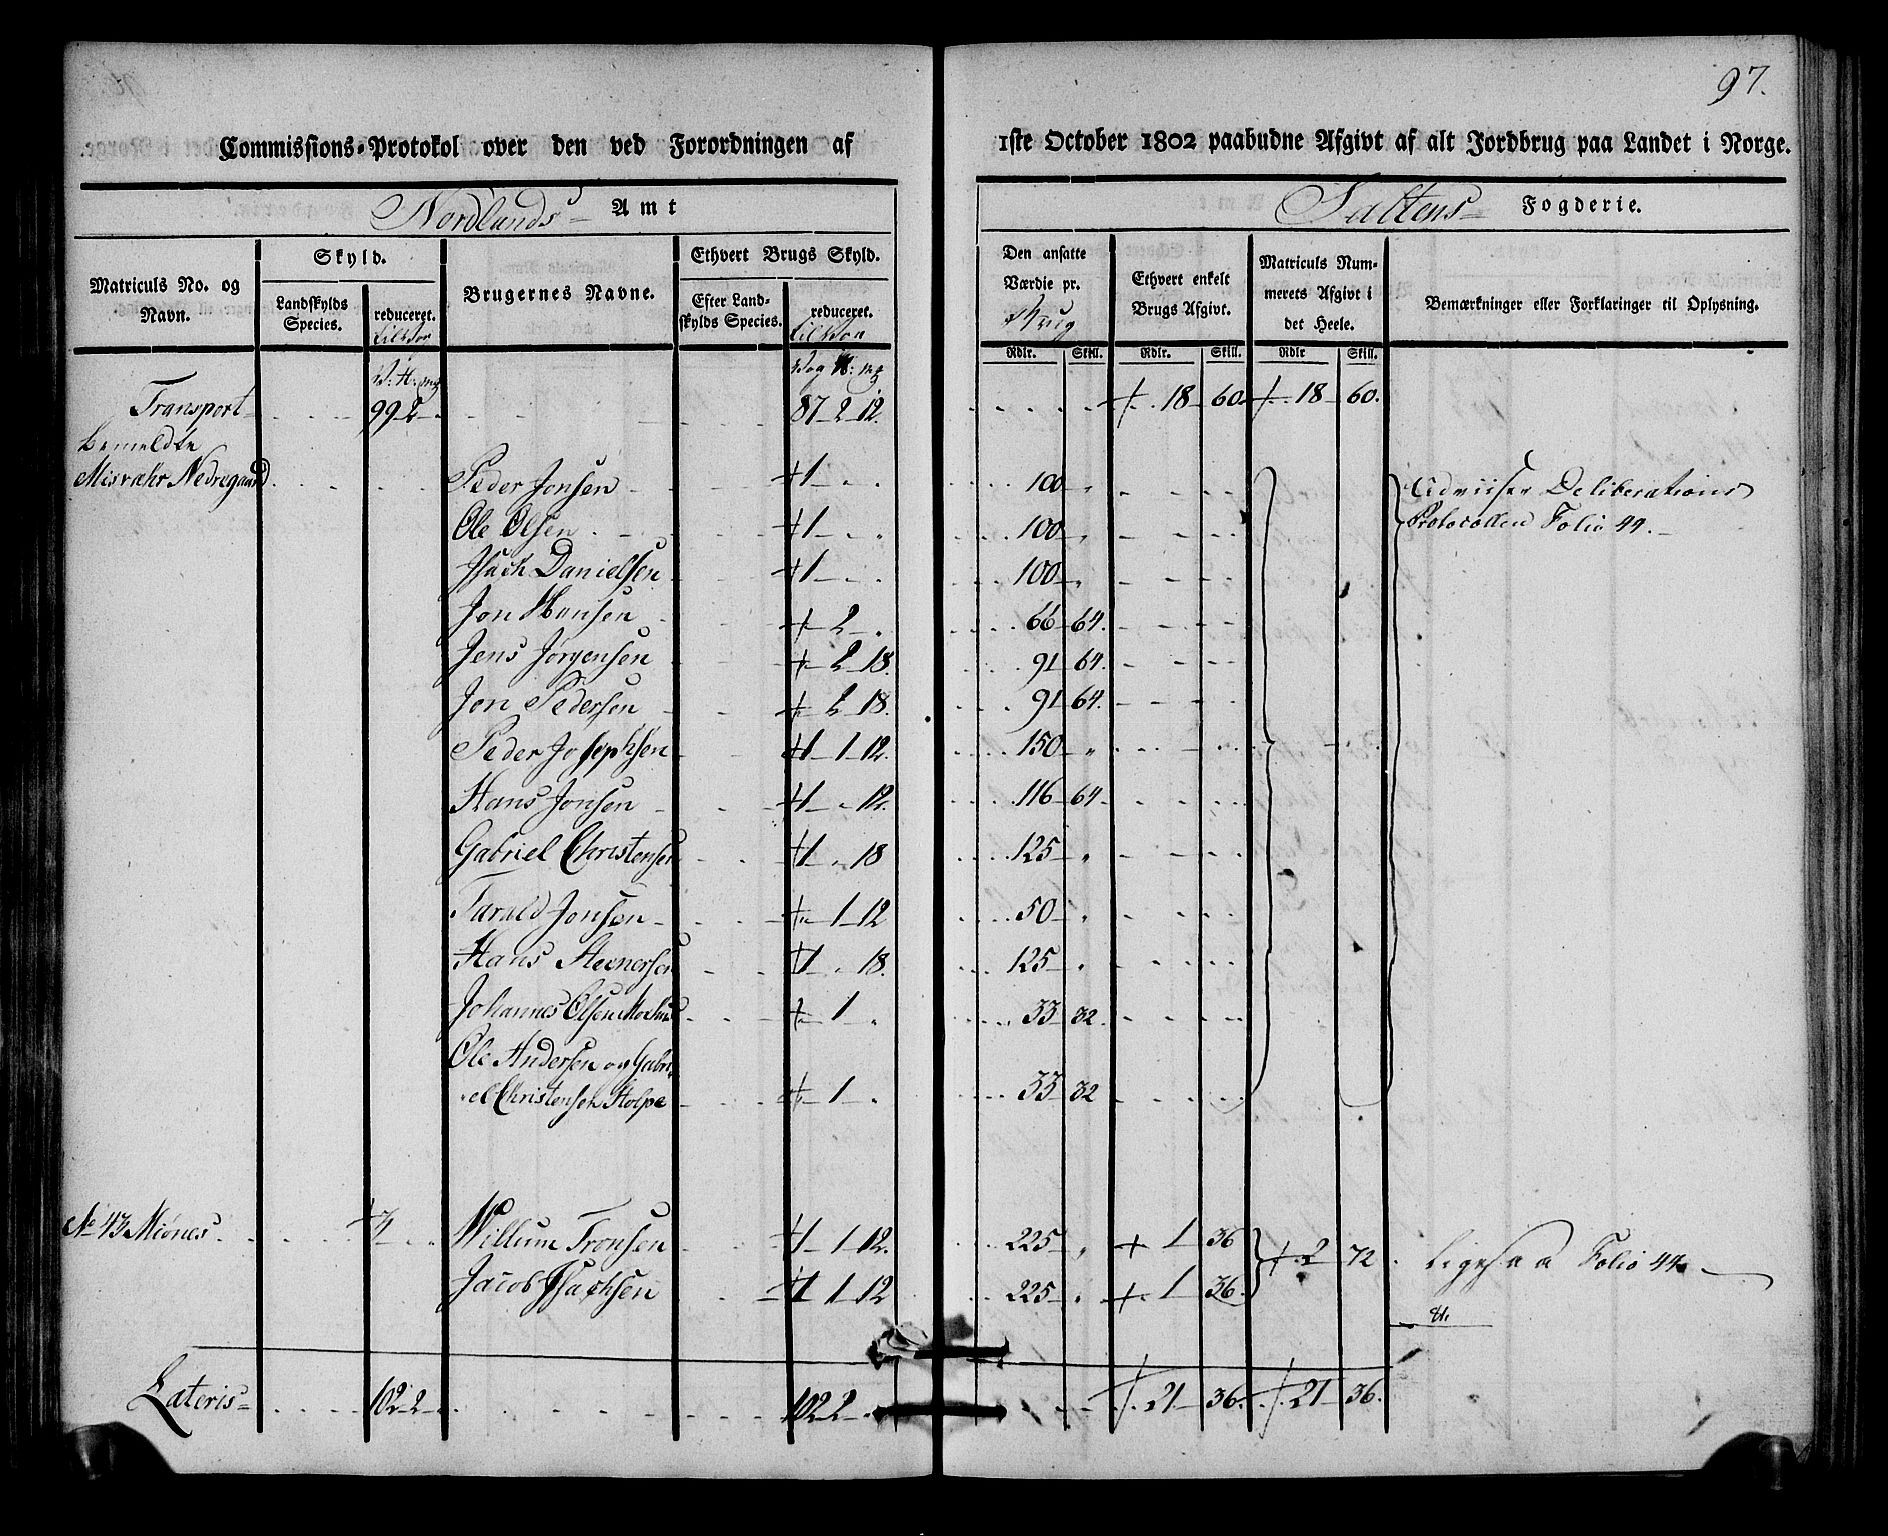 97.
Commissions-Protokol over den ved Forordningen af 1ste October 1802 paabudne Afgivt af alt Jordbrug paa Landet i Norge.
Nordlands Amt
Saltens Fogderie.
Matriculs No. og Navn.
Skyld.
Landskylds Species.
reduceret.
Brugernes Navne.
Ethvert Brugs Skyld.
Efter Landskylds Species.
reduceret.
Den ansatte Værdie pr.
Ethvert enkelt Brugs Afgivt.
Matriculs Nummerets Afgivt i det Heele.
Bemærkninger eller Forklaringer til Oplysning.
Rdlr. Skill. Rdlr. Skill. Rdlr Skill.
Transport 99 2 87 2 12. 18 60. 18 60.
bemeldte
Misvahr Nedregaard Peder Jonsen 1 100 Udviiser Deliberations
Protocollen Folio 44.
Ole Olsen 1 100
Isach Danielsen 1 100
Jon Hansen 2 66 64.
Jens Jørgensen 2 18. 91 64.
Jon Pedersen 2 18. 91 64.
Peder Josephsen 1 1 12. 150
Hans Jonsen 1 12. 116 64
Gabriel Christensen 1 18 125
Tarald Jonsen 1 12 50
Hans 1 18. 125
Johannes Olsen 1 33 32.
Ole Andersen og Gabri
el Christensen 1 33 32
No 43 Miønes 3 Willum Tronsen 1 1 12. 225 1 36 2 72 Ligesaa Folio 44
Jacob Isachsen 1 1 12 225 1 36
Lateris 102 2 102 2 21 36. 21 36.